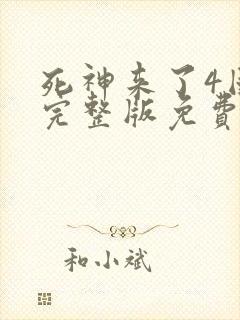 死神来了4
完整版免費
和小斌